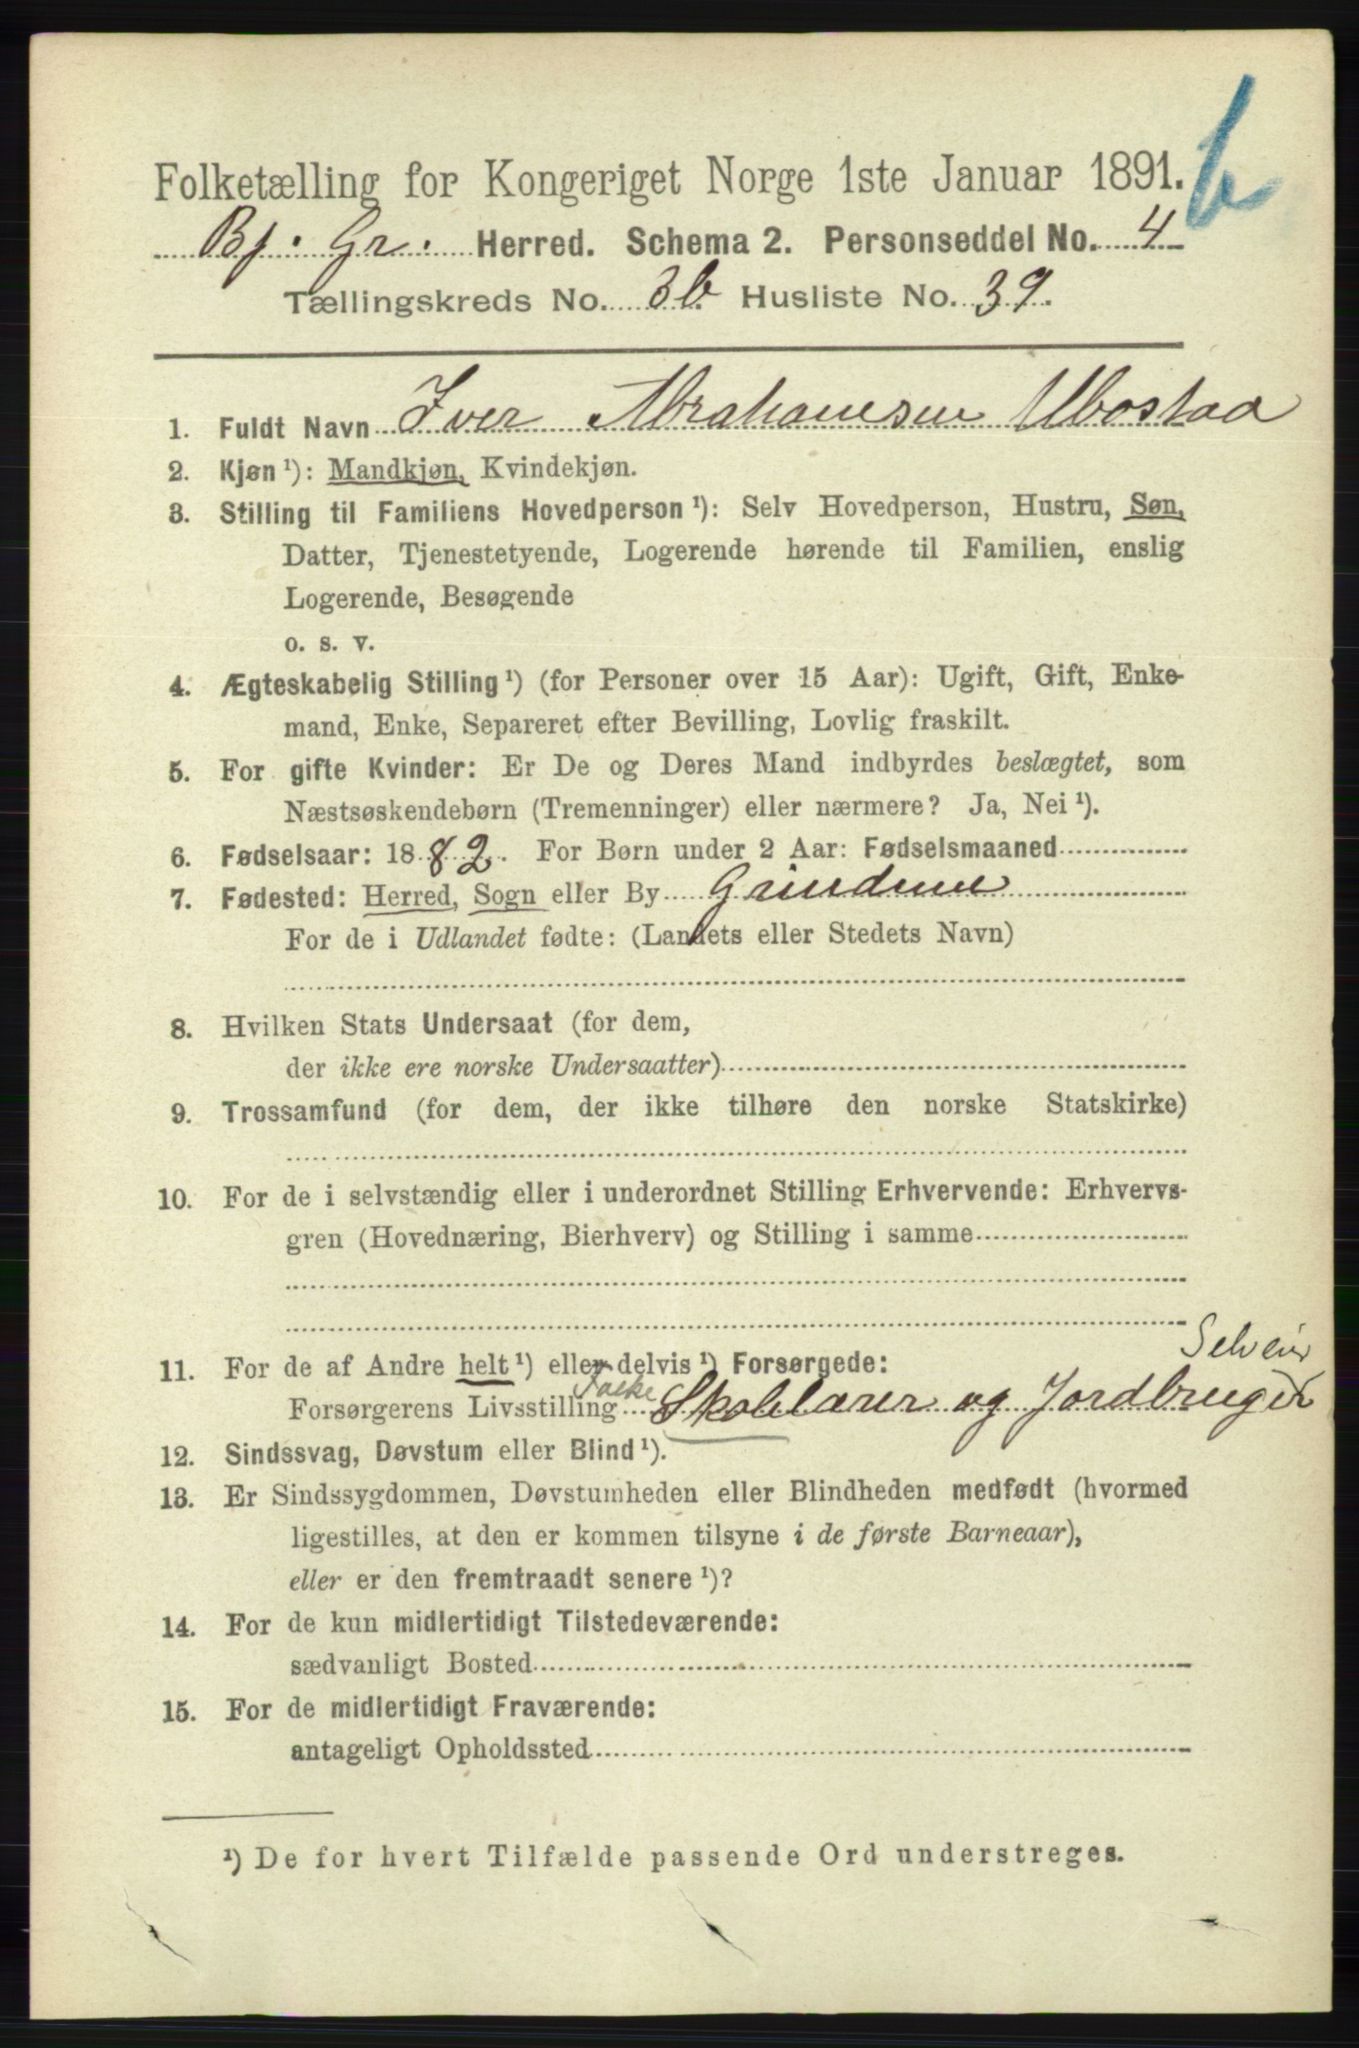 b
Folketælling for Kongeriget Norge 1ste Januar 1891.
Bj. Gr. Herred. Schema 2. Personseddel No. 4
Tællingskreds No. 3b Husliste No. 39.
1. Fuldt Navn Iver Abrahamsen Ubostad
2. Kjøn ¹): Mandkjøn, Kvindekjøn.
3. Stilling til Familiens Hovedperson ¹): Selv Hovedperson, Hustru, Søn,
Datter, Tjenestetyende, Logerende hørende til Familien, enslig
Logerende, Besøgende
o. s. v.
4. Ægteskabelig Stilling ¹) (for Personer over 15 Aar): Ugift, Gift, Enke-
mand, Enke, Separeret efter Bevilling, Lovlig fraskilt.
5. For gifte Kvinder: Er De og Deres Mand indbyrdes beslægtet, som
Næstsøskendebørn (Tremenninger) eller nærmere? Ja, Nei ¹).
6. Fødselsaar: 1882. For Børn under 2 Aar: Fødselsmaaned
7. Fødested: Herred, Sogn eller By Grindum
For de i Udlandet fødte: (Landets eller Stedets Navn)
8. Hvilken Stats Undersaat (for dem,
der ikke ere norske Undersaatter)
9. Trossamfund (for dem, der ikke tilhøre den norske Statskirke)
10. For de i selvstændig eller i underordnet Stilling Erhvervende: Erhvervs-
gren (Hovednæring, Bierhverv) og Stilling i samme
Selveier
11. For de af Andre helt ¹) eller delvis ¹) Forsørgede:
Folke
Forsørgerens Livsstilling Skolelærer og Jordbruger
12. Sindssvag, Døvstum eller Blind ¹).
13. Er Sindssygdommen, Døvstumheden eller Blindheden medfødt (hvormed
ligestilles, at den er kommen tilsyne i de første Barneaar),
eller er den fremtraadt senere ¹)?
14. For de kun midlertidigt Tilstedeværende:
sædvanligt Bosted
15. For de midlertidigt Fraværende:
antageligt Opholdssted
¹) De for hvert Tilfælde passende Ord understreges.